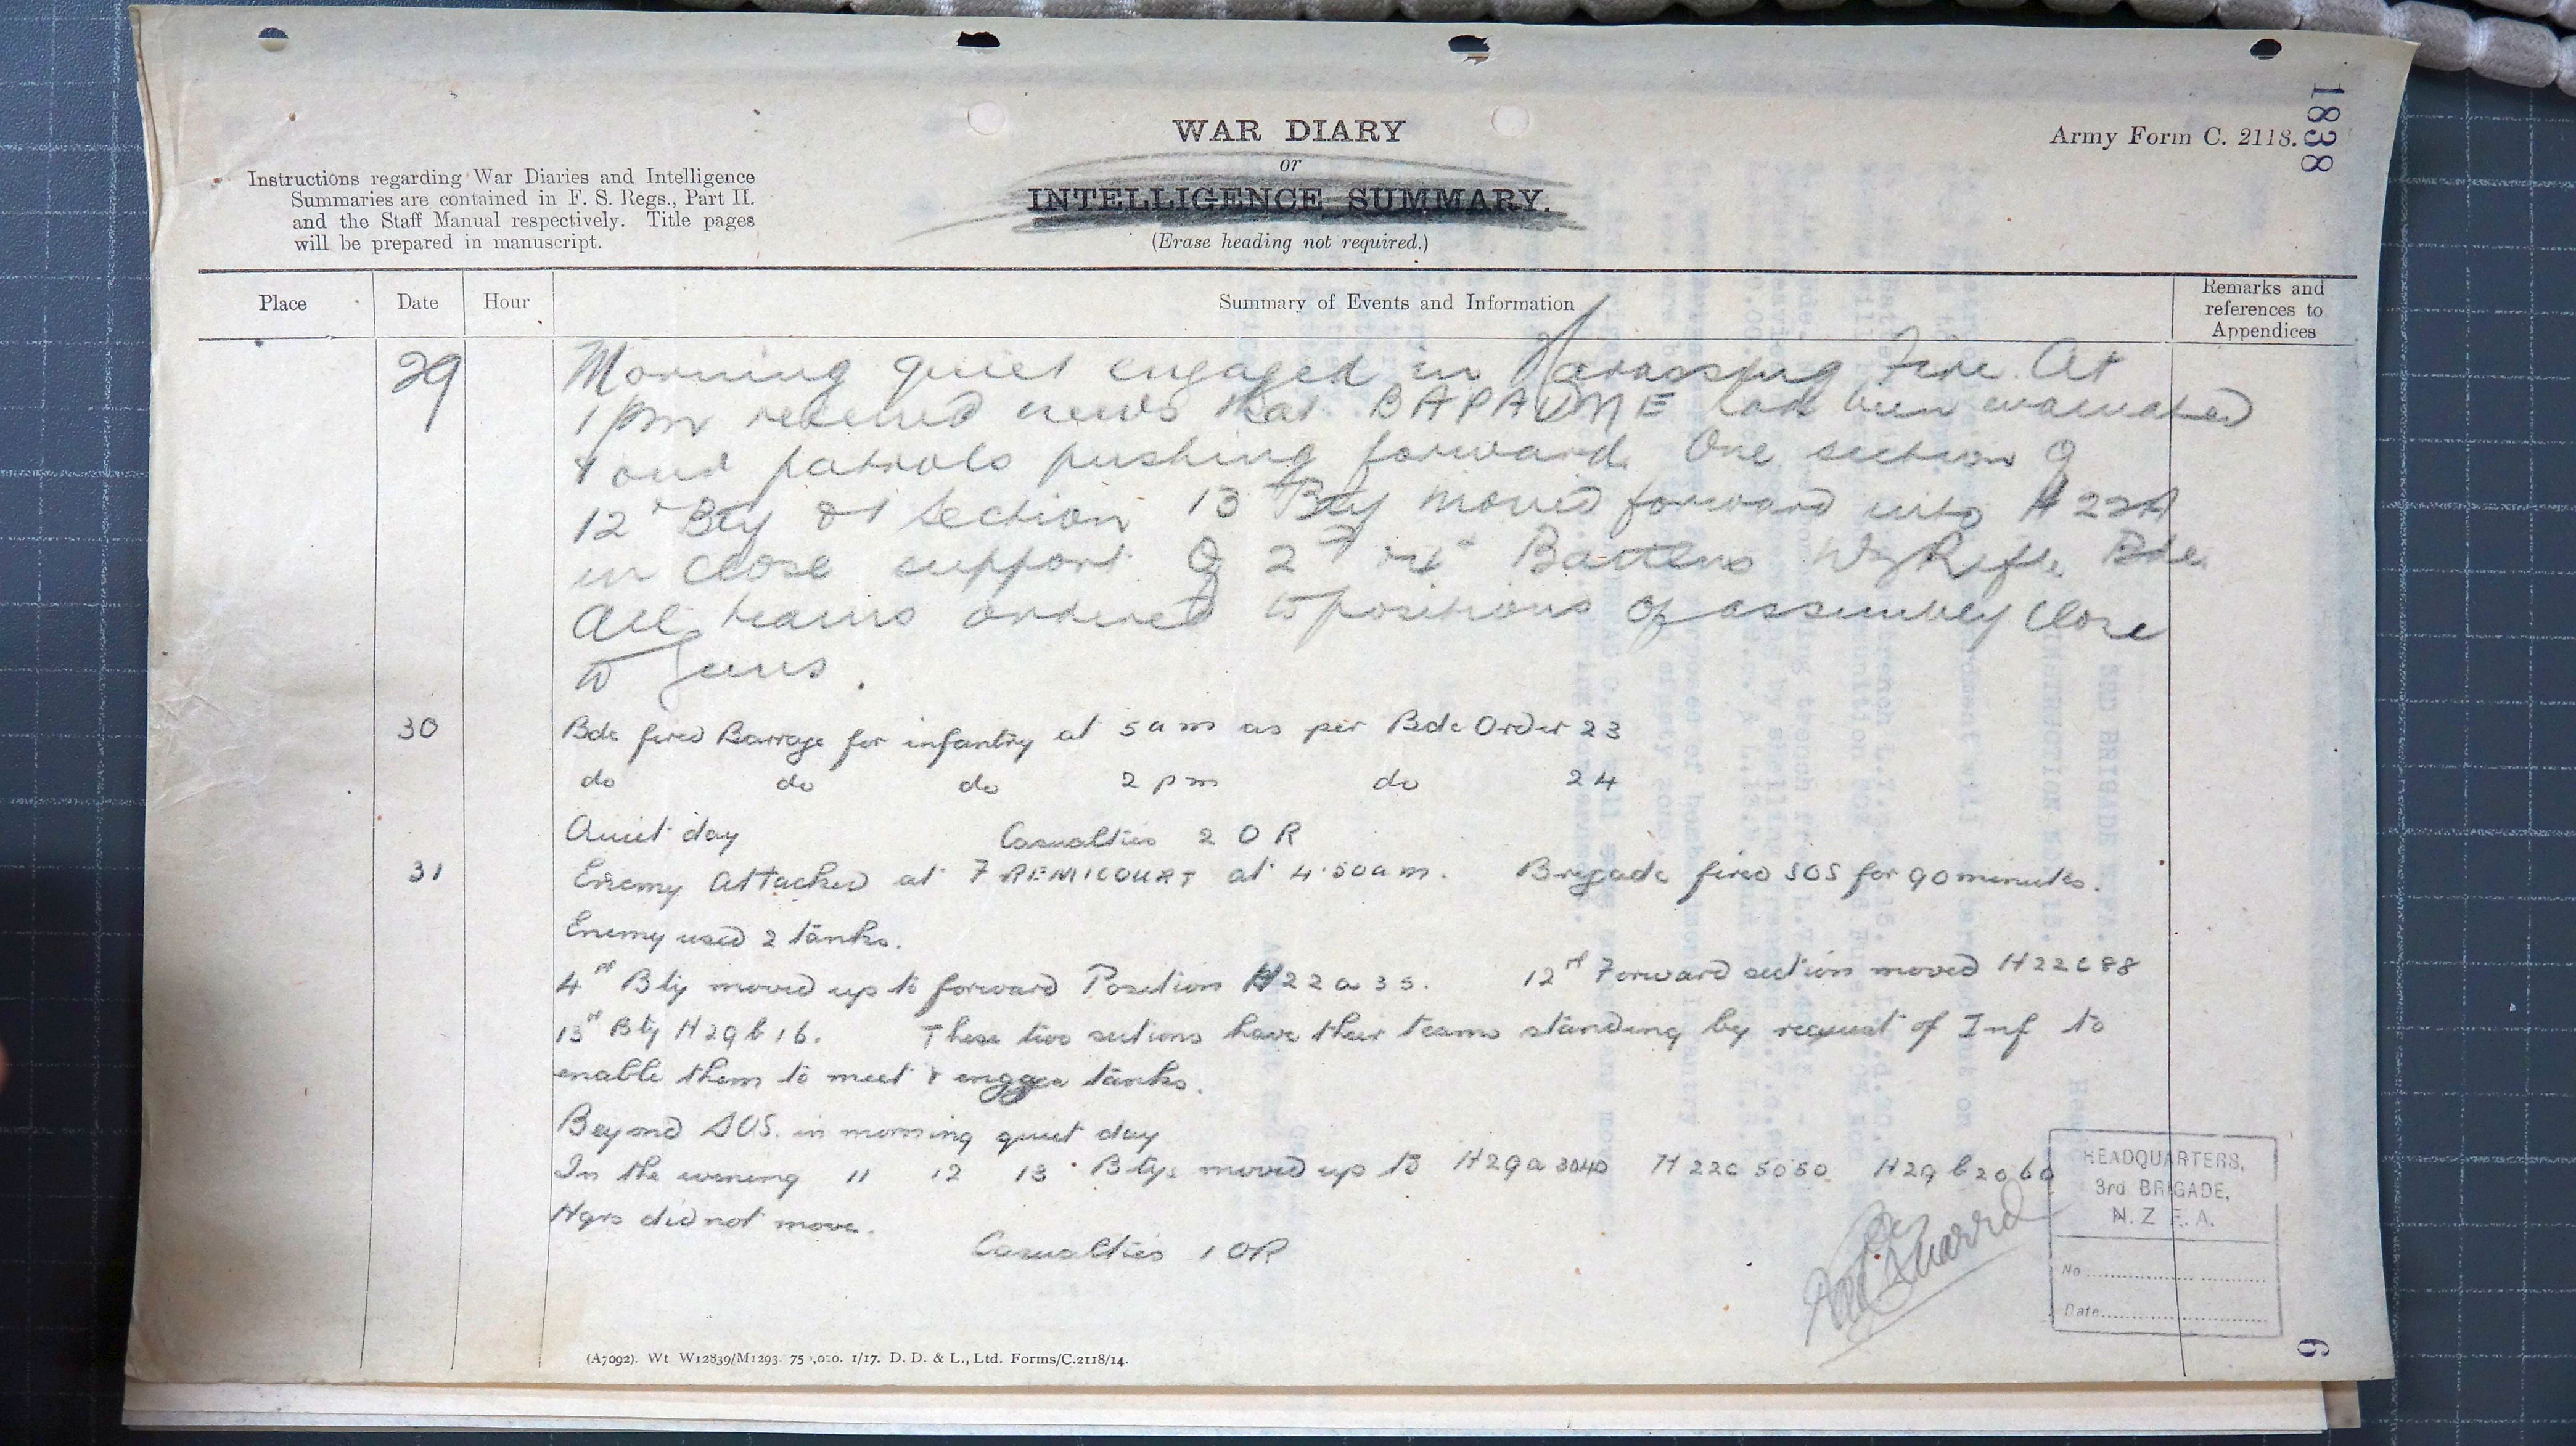 1838
WAR DIARY
Army Form C. 2118.
or
INTELLIGENCE SUMMARY.
(Erase heading not required.)
Instructions regarding War Diaries and Intelligence
Summaries are contained in F. S. Regs., Part II.
and the Staff Manual respectively. Title pages
will be prepared in manuscript.
Place Date Hour Summary of Events and Information Remarks and references to Appendices
29 Morning quiet engaged in Harassing Fire. At
1 pm received news that BAPAUME had been evacuated
& our patrols pushing forward. One section of
12th Bty & 1 Section 13th Bty moved forward into H22A
in close support of 2nd & 4th Battens NZ Rifle Bde.
All teams ordered to positions of assembly close
to guns.
30 Bde fired Barrage for infantry at 5 am as per Bde Order 23
do do do 2 pm do 24
Quiet day Casualties 2 OR
31 Enemy Attacked at FREMICOURT at 4.50am. Brigade fired SOS for 90 minutes.
Enemy used 2 tanks.
4th Bty moved up to forward Position H22a35. 12th Forward section moved H22c88
13th Bty H29b16. These two sections have their teams standing by request of Inf to
enable them to meet & engage tanks.
Beyond SOS. in morning quiet day
In the evening 11 12 13 Btys moved up to H29a3040 H22c5050 H29b2060
Hqrs did not move.
Casualties 1 OR
HEADQUARTERS,
3rd BRIGADE,
N. Z. F. A.
No
Date
(A7092). Wt W12839/M1293 75 ,000. 1/17. D. D. & L., Ltd. Forms/C.2118/14.
6